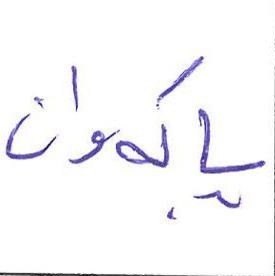 پاکەوان